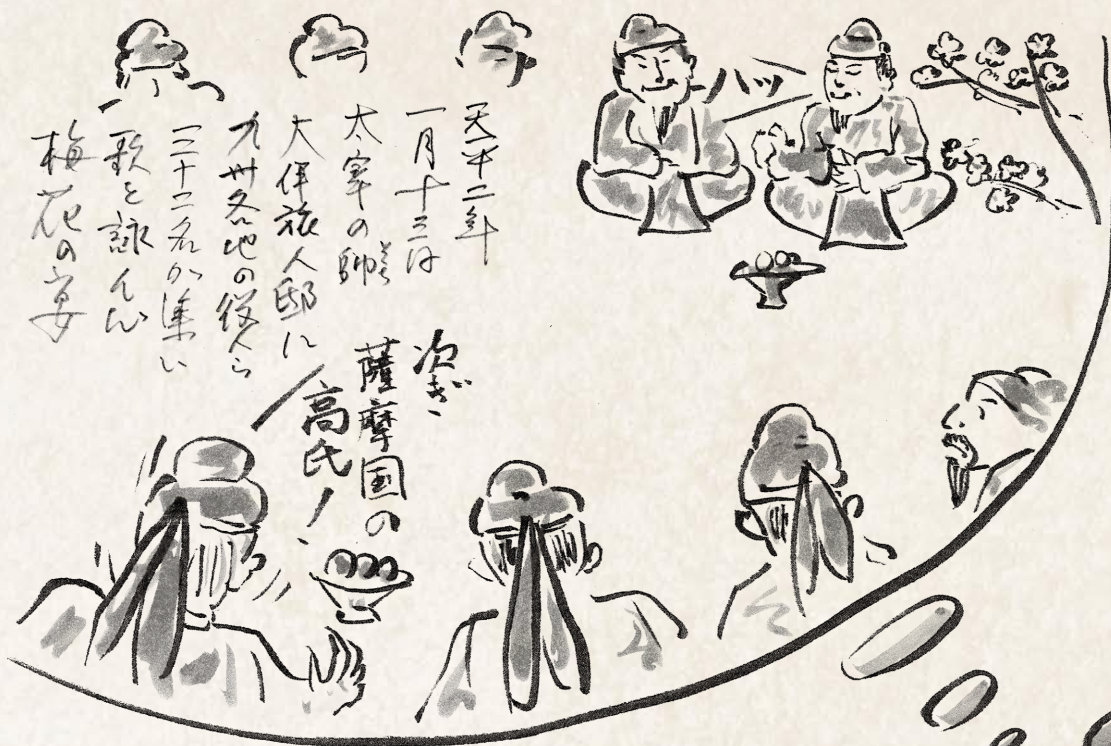 天平二年
一月十三日
太宰の帥
大伴旅人邸に
九州各地の役人ら
三十二名が集い
歌を詠んだ
梅花の宴
ハッ
次ぎ
薩摩国の
高氏！